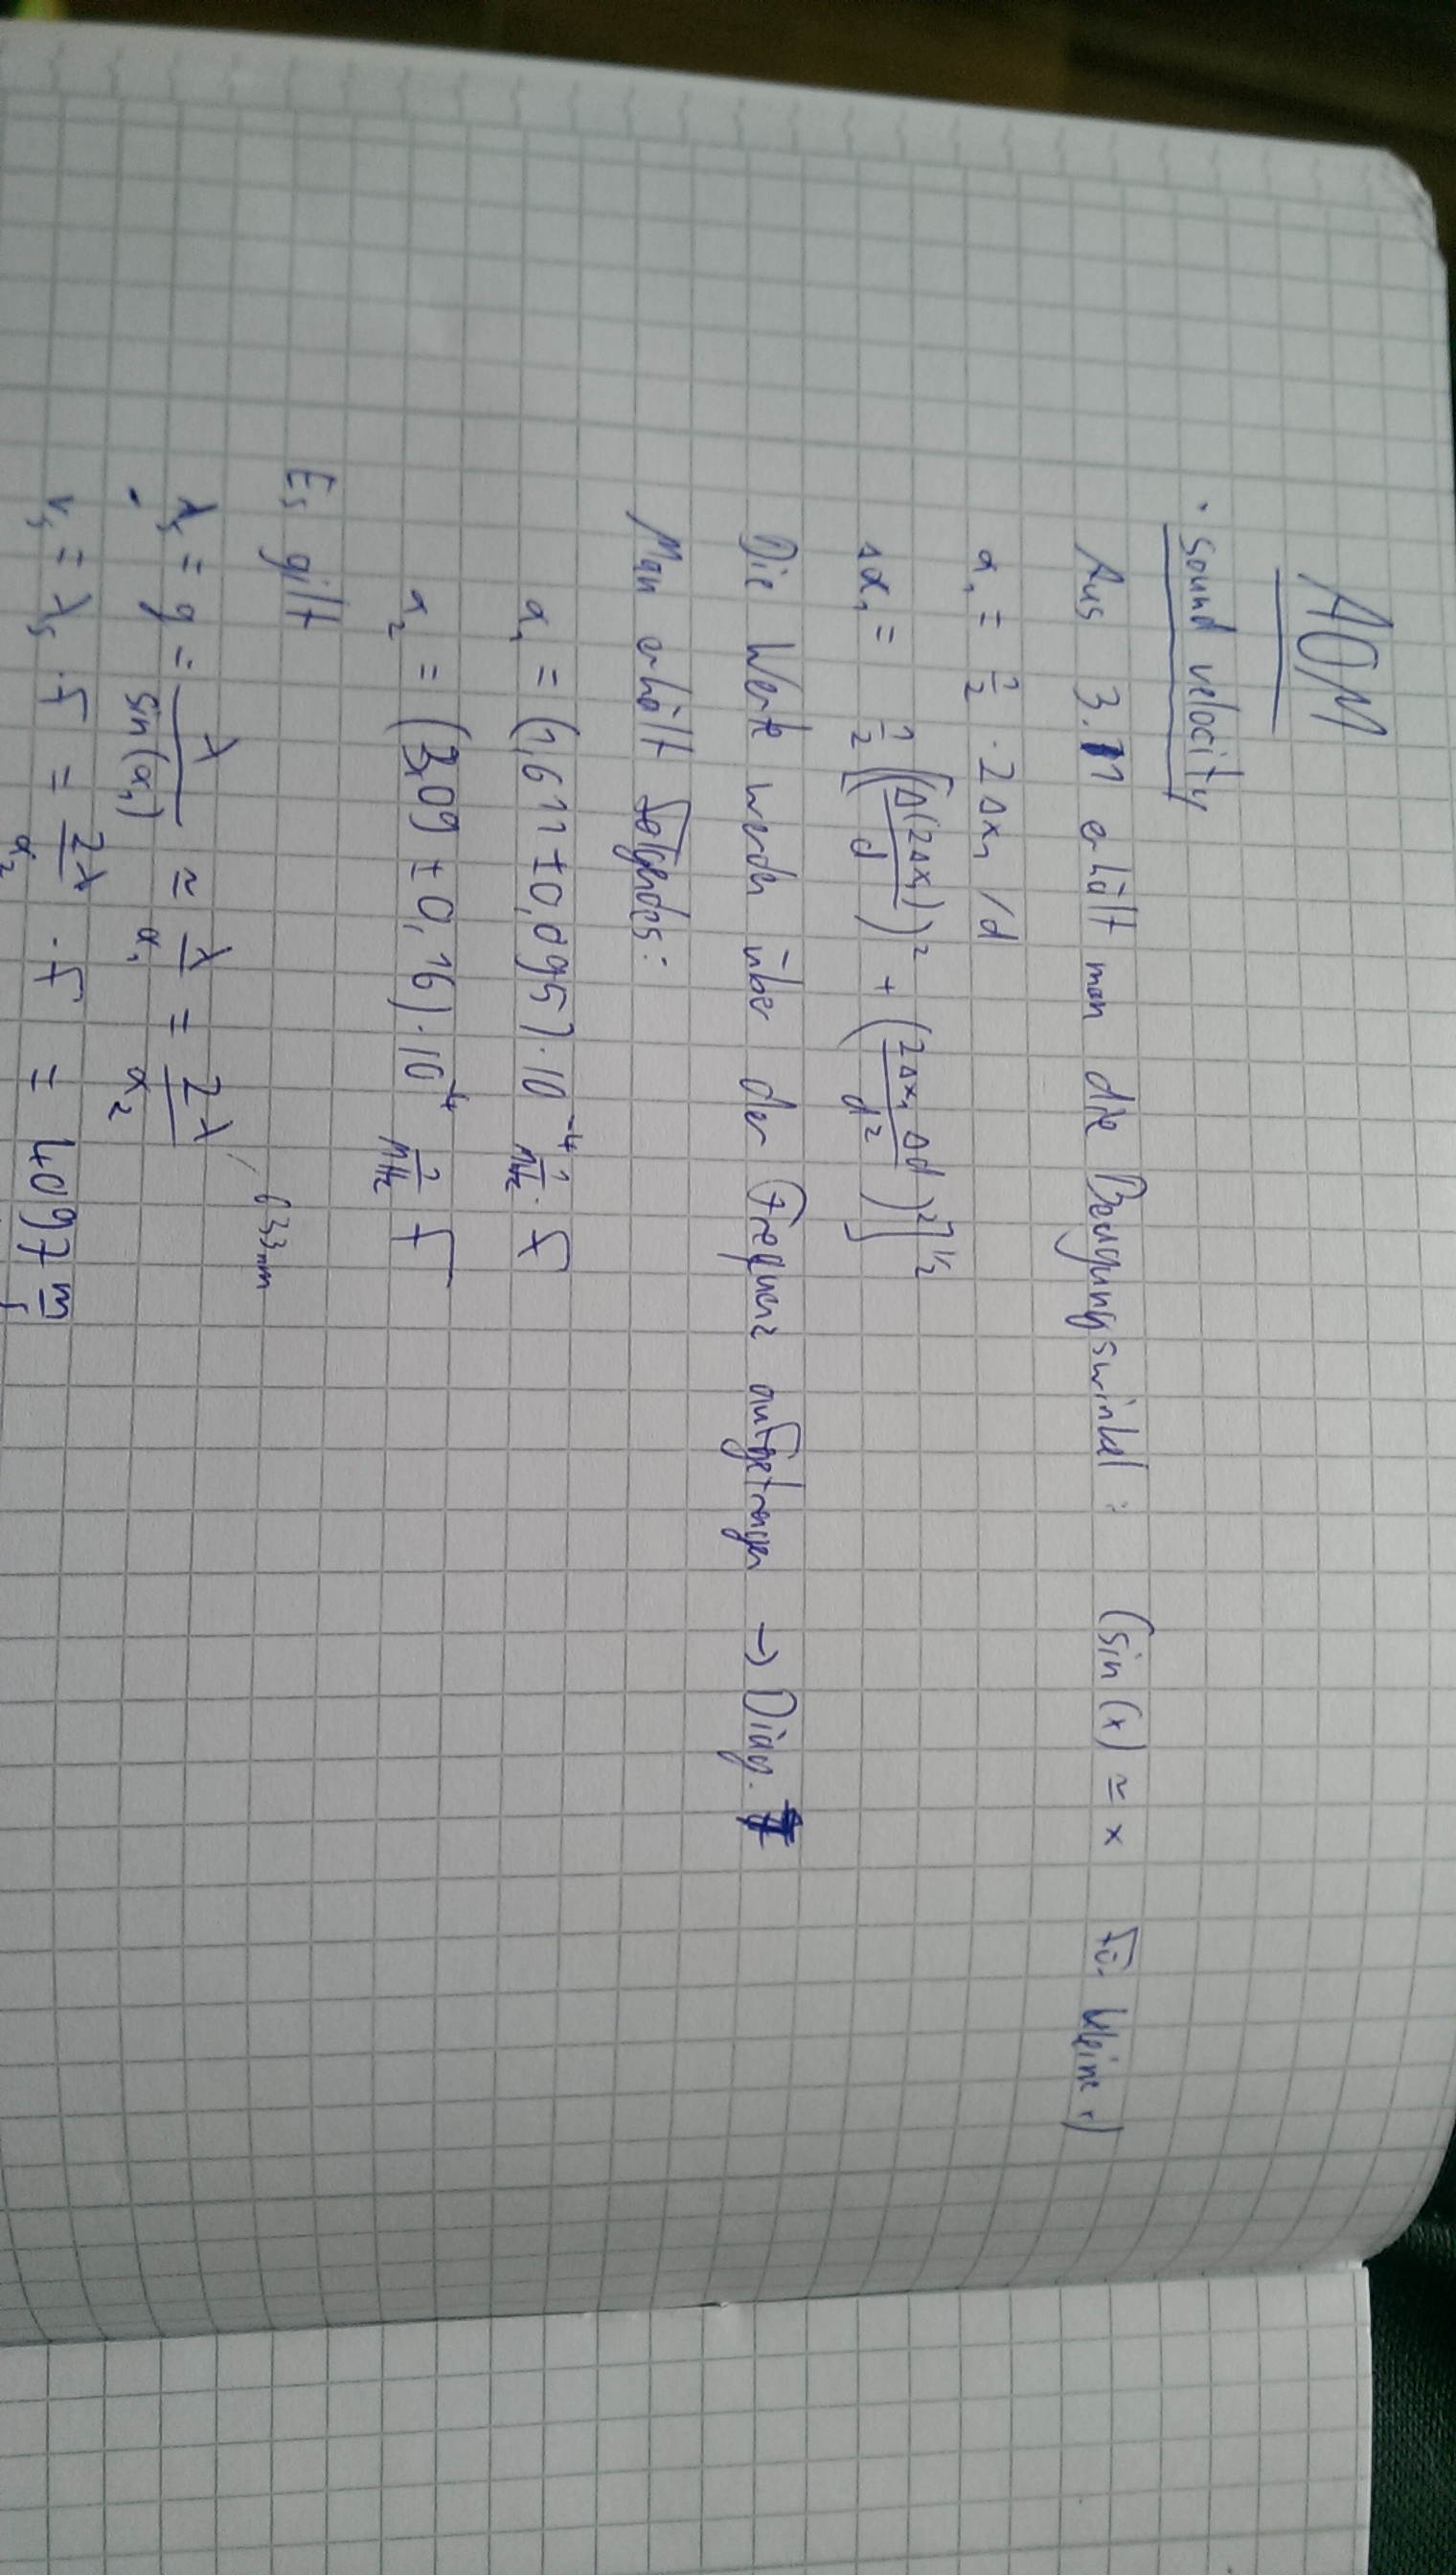 AOM
· Sound velocity
Aus 3.11 erhält man die Beugungswinkel: (sin(x) ≃ x für kleine x)
α₁ = 1/2 · 2Δx₁/d
Δα₁ = 1/2 [(Δ(2Δx₁)/d)² + (2Δx₁Δd/d²)²]^1/2
Die Werte werden über der Frequenz aufgetragen → Diag.
Man erhält folgendes:
α₁ = (1,611 ± 0,095) · 10⁻⁴ 1/MHz · f
α₂ = (3,09 ± 0,16) · 10⁻⁴ 1/MHz f
Es gilt
633nm
λₛ = g = λ/sin(α₁) ≃ λ/α₁ = 2λ/α₂
vₛ = λₛ · f = 2λ/α₂ · f = 4097 m/s